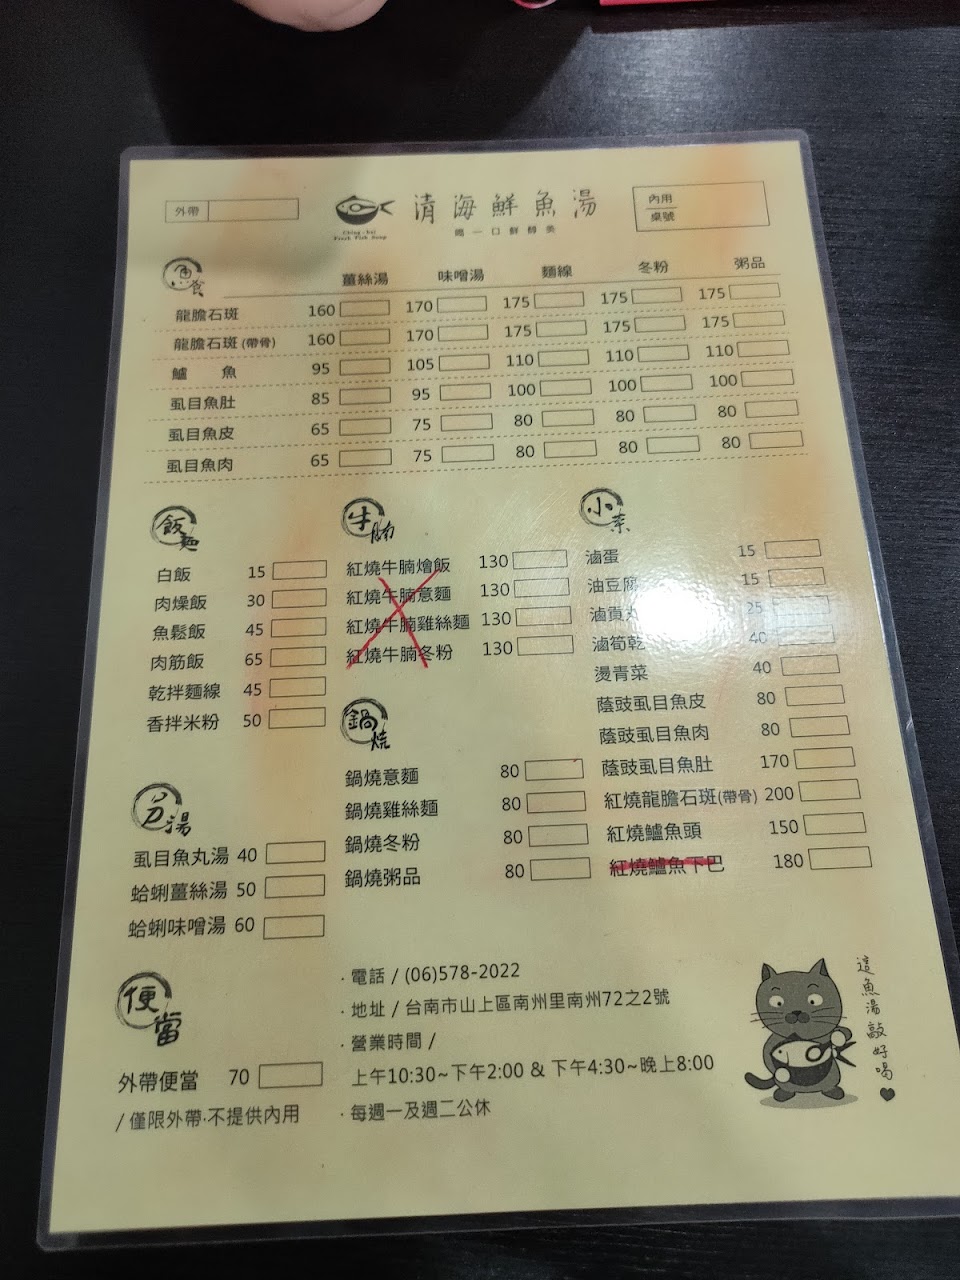 外帶
清海鮮魚湯
內用
桌號
Ching-hai
Fresh Fish Soup
喝一口鮮醇美
魚食 薑絲湯 味噌湯 麵線 冬粉 粥品
龍膽石斑 160 170 175 175 175
龍膽石斑(帶骨) 160 170 175 175 175
鱸魚 95 105 110 110 110
虱目魚肚 85 95 100 100 100
虱目魚皮 65 75 80 80 80
虱目魚肉 65 75 80 80 80
飯麵
白飯 15
肉燥飯 30
魚鬆飯 45
肉筋飯 65
乾拌麵線 45
香拌米粉 50
湯
虱目魚丸湯 40
蛤蜊薑絲湯 50
蛤蜊味噌湯 60
便當
外帶便當 70
/ 僅限外帶·不提供內用
牛腩
紅燒牛腩燴飯 130
紅燒牛腩意麵 130
紅燒牛腩雞絲麵 130
紅燒牛腩冬粉 130
鍋燒
鍋燒意麵 80
鍋燒雞絲麵 80
鍋燒冬粉 80
鍋燒粥品 80
小菜
滷蛋 15
油豆腐 15
滷貢丸 25
滷筍乾 40
燙青菜 40
蔭豉虱目魚皮 80
蔭豉虱目魚肉 80
蔭豉虱目魚肚 170
紅燒龍膽石斑(帶骨) 200
紅燒鱸魚頭 150
紅燒鱸魚下巴 180
· 電話 / (06)578-2022
· 地址 / 台南市山上區南州里南州72之2號
· 營業時間 /
上午10:30~下午2:00 & 下午4:30~晚上8:00
· 每週一及週二公休
這魚湯敲好喝